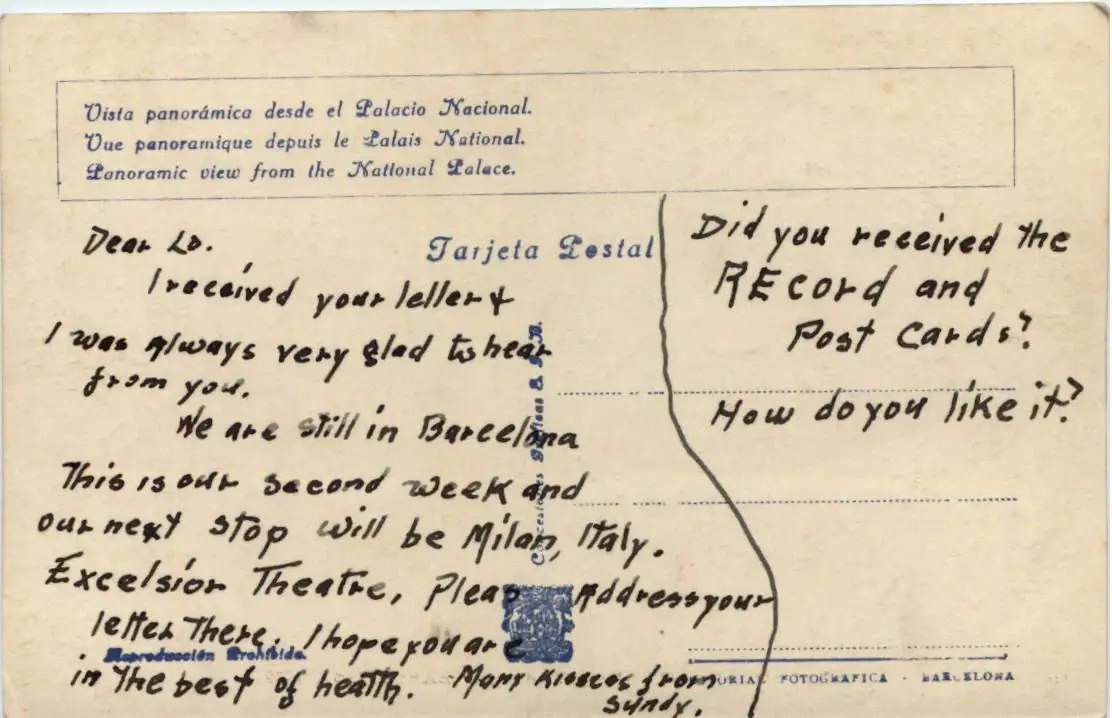 Vista panorámica desde el Palacio Nacional.
Vue panoramique depuis le Palais National.
Panoramic view from the National Palace.
Tarjeta Postal
Dear Lo.
I received your letter &
I was always very glad to hear
from you.
We are still in Barcelona
This is our second week and
our next stop will be Milan, Italy.
Excelsior Theatre, Pleas Address your
letter there. I hope you are
in the best of health. Many kisses from
Sundy.
Did you received the
RECord and
Post Cards?
How do you like it?
Reproducción Prohibida.
FOTOGRAFICA - BARCELONA